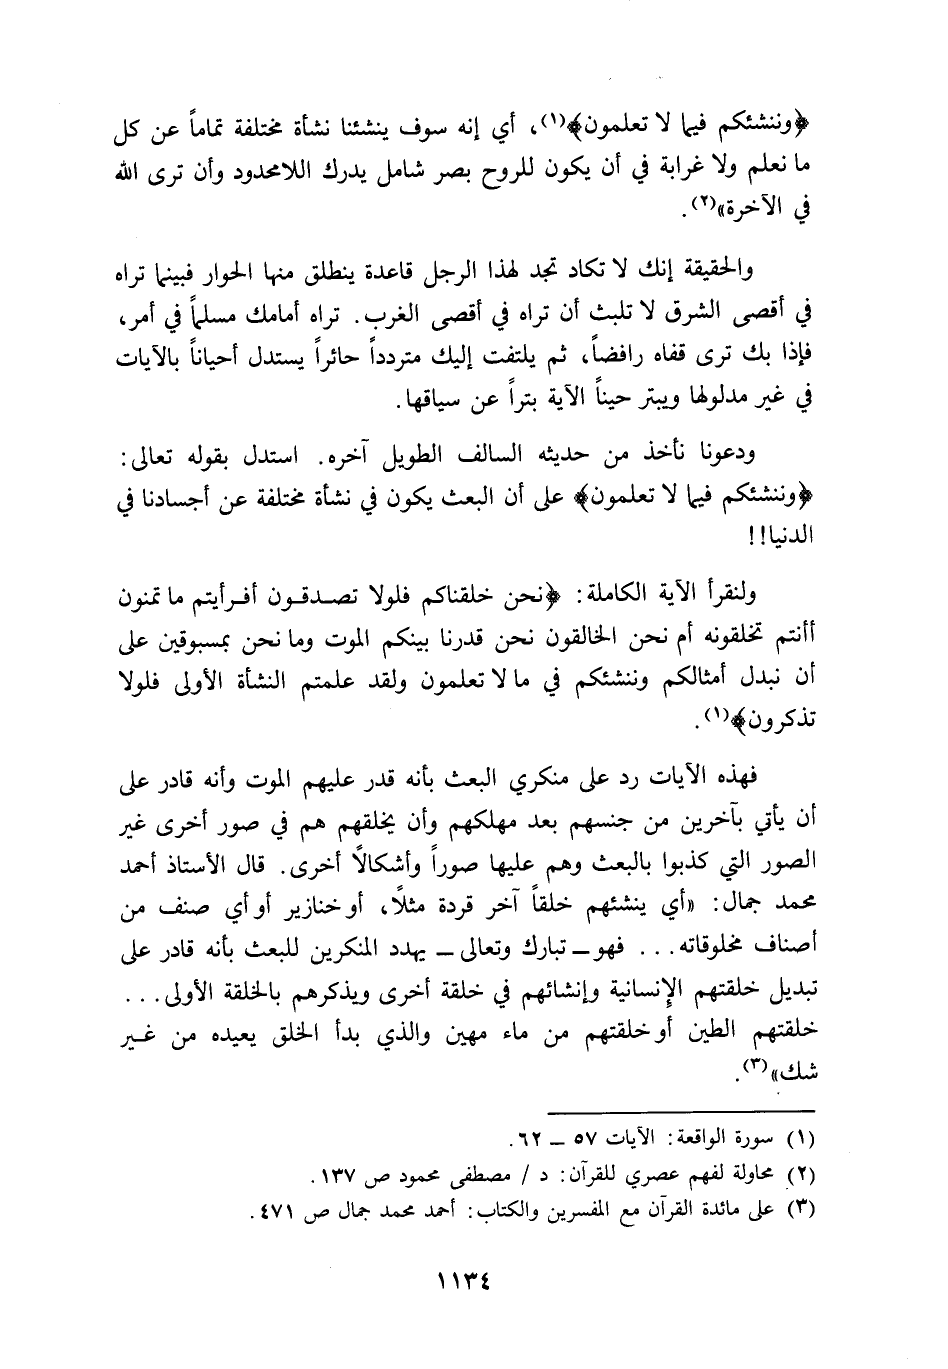 ﴿وننشئكم فيما لا تعلمون﴾(١)، أي إنه سوف ينشئنا نشأة مختلفة تماماً عن كل
ما نعلم ولا غرابة في أن يكون للروح بصر شامل يدرك اللامحدود وأن ترى الله
في الآخرة»(٢).
والحقيقة إنك لا تكاد تجد لهذا الرجل قاعدة ينطلق منها الحوار فبينما تراه
في أقصى الشرق لا تلبث أن تراه في أقصى الغرب. تراه أمامك مسلماً في أمر،
فإذا بك ترى قفاه رافضاً، ثم يلتفت إليك متردداً حائراً يستدل أحياناً بالآيات
في غير مدلولها ويبتر حيناً الآية بتراً عن سياقها.
ودعونا نأخذ من حديثه السالف الطويل آخره. استدل بقوله تعالى:
﴿وننشئكم فيما لا تعلمون﴾ على أن البعث يكون في نشأة مختلفة عن أجسادنا في
الدنيا!!
ولنقرأ الآية الكاملة: ﴿نحن خلقناكم فلولا تصدقون أفرأيتم ما تمنون
أأنتم تخلقونه أم نحن الخالقون نحن قدرنا بينكم الموت وما نحن بمسبوقين على
أن نبدل أمثالكم وننشئكم في ما لا تعلمون ولقد علمتم النشأة الأولى فلولا
تذكرون﴾(١).
فهذه الآيات رد على منكري البعث بأنه قدر عليهم الموت وأنه قادر على
أن يأتي بآخرين من جنسهم بعد مهلكهم وأن يخلقهم هم في صور أخرى غير
الصور التي كذبوا بالبعث وهم عليها صوراً وأشكالًا أخرى. قال الأستاذ أحمد
محمد جمال: «أي ينشئهم خلقاً آخر قردة مثلًا، أو خنازير أو أي صنف من
أصناف مخلوقاته... فهو ـ تبارك وتعالى ـ يهدد المنكرين للبعث بأنه قادر على
تبديل خلقتهم الإنسانية وإنشائهم في خلقة أخرى ويذكرهم بالخلقة الأولى...
خلقتهم الطين أو خلقتهم من ماء مهين والذي بدأ الخلق يعيده من غير
شك»(٣).
(١) سورة الواقعة: الآيات ٥٧ ـ ٦٢.
(٢) محاولة لفهم عصري للقرآن: د / مصطفى محمود ص ١٣٧.
(٣) على مائدة القرآن مع المفسرين والكتاب: أحمد محمد جمال ص ٤٧١.
١١٣٤